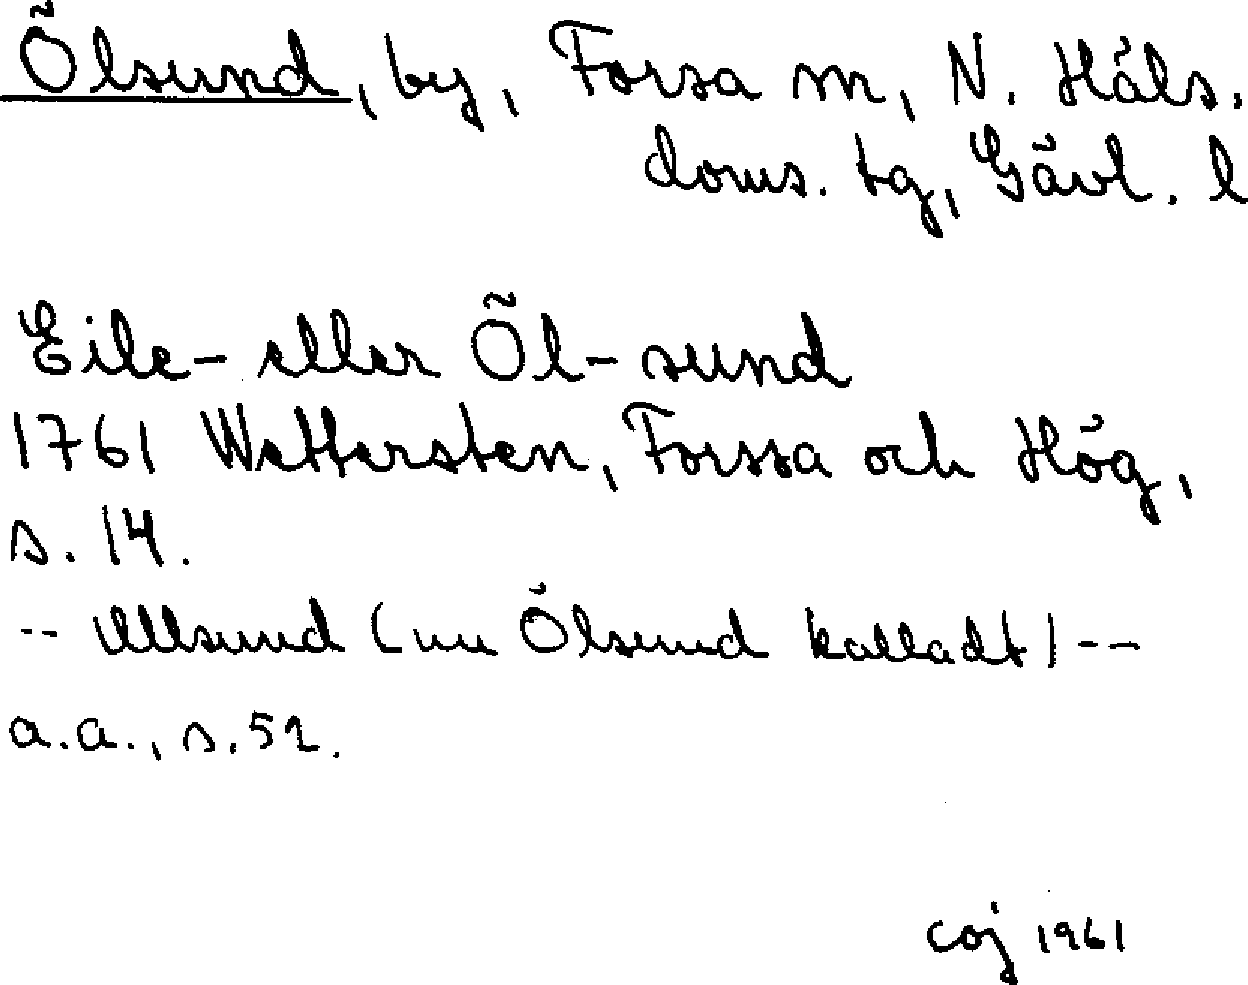 Ölsund, by, Forsa sn, N. Häls.
doms. tg, Gävl. l
Eile- eller Öl- sund
1761 Wettersten, Forssa och Hög,
s. 14.
-- Ullsund (nu Ölsund kalladt) --
a.a., s. 52.
coj 1961